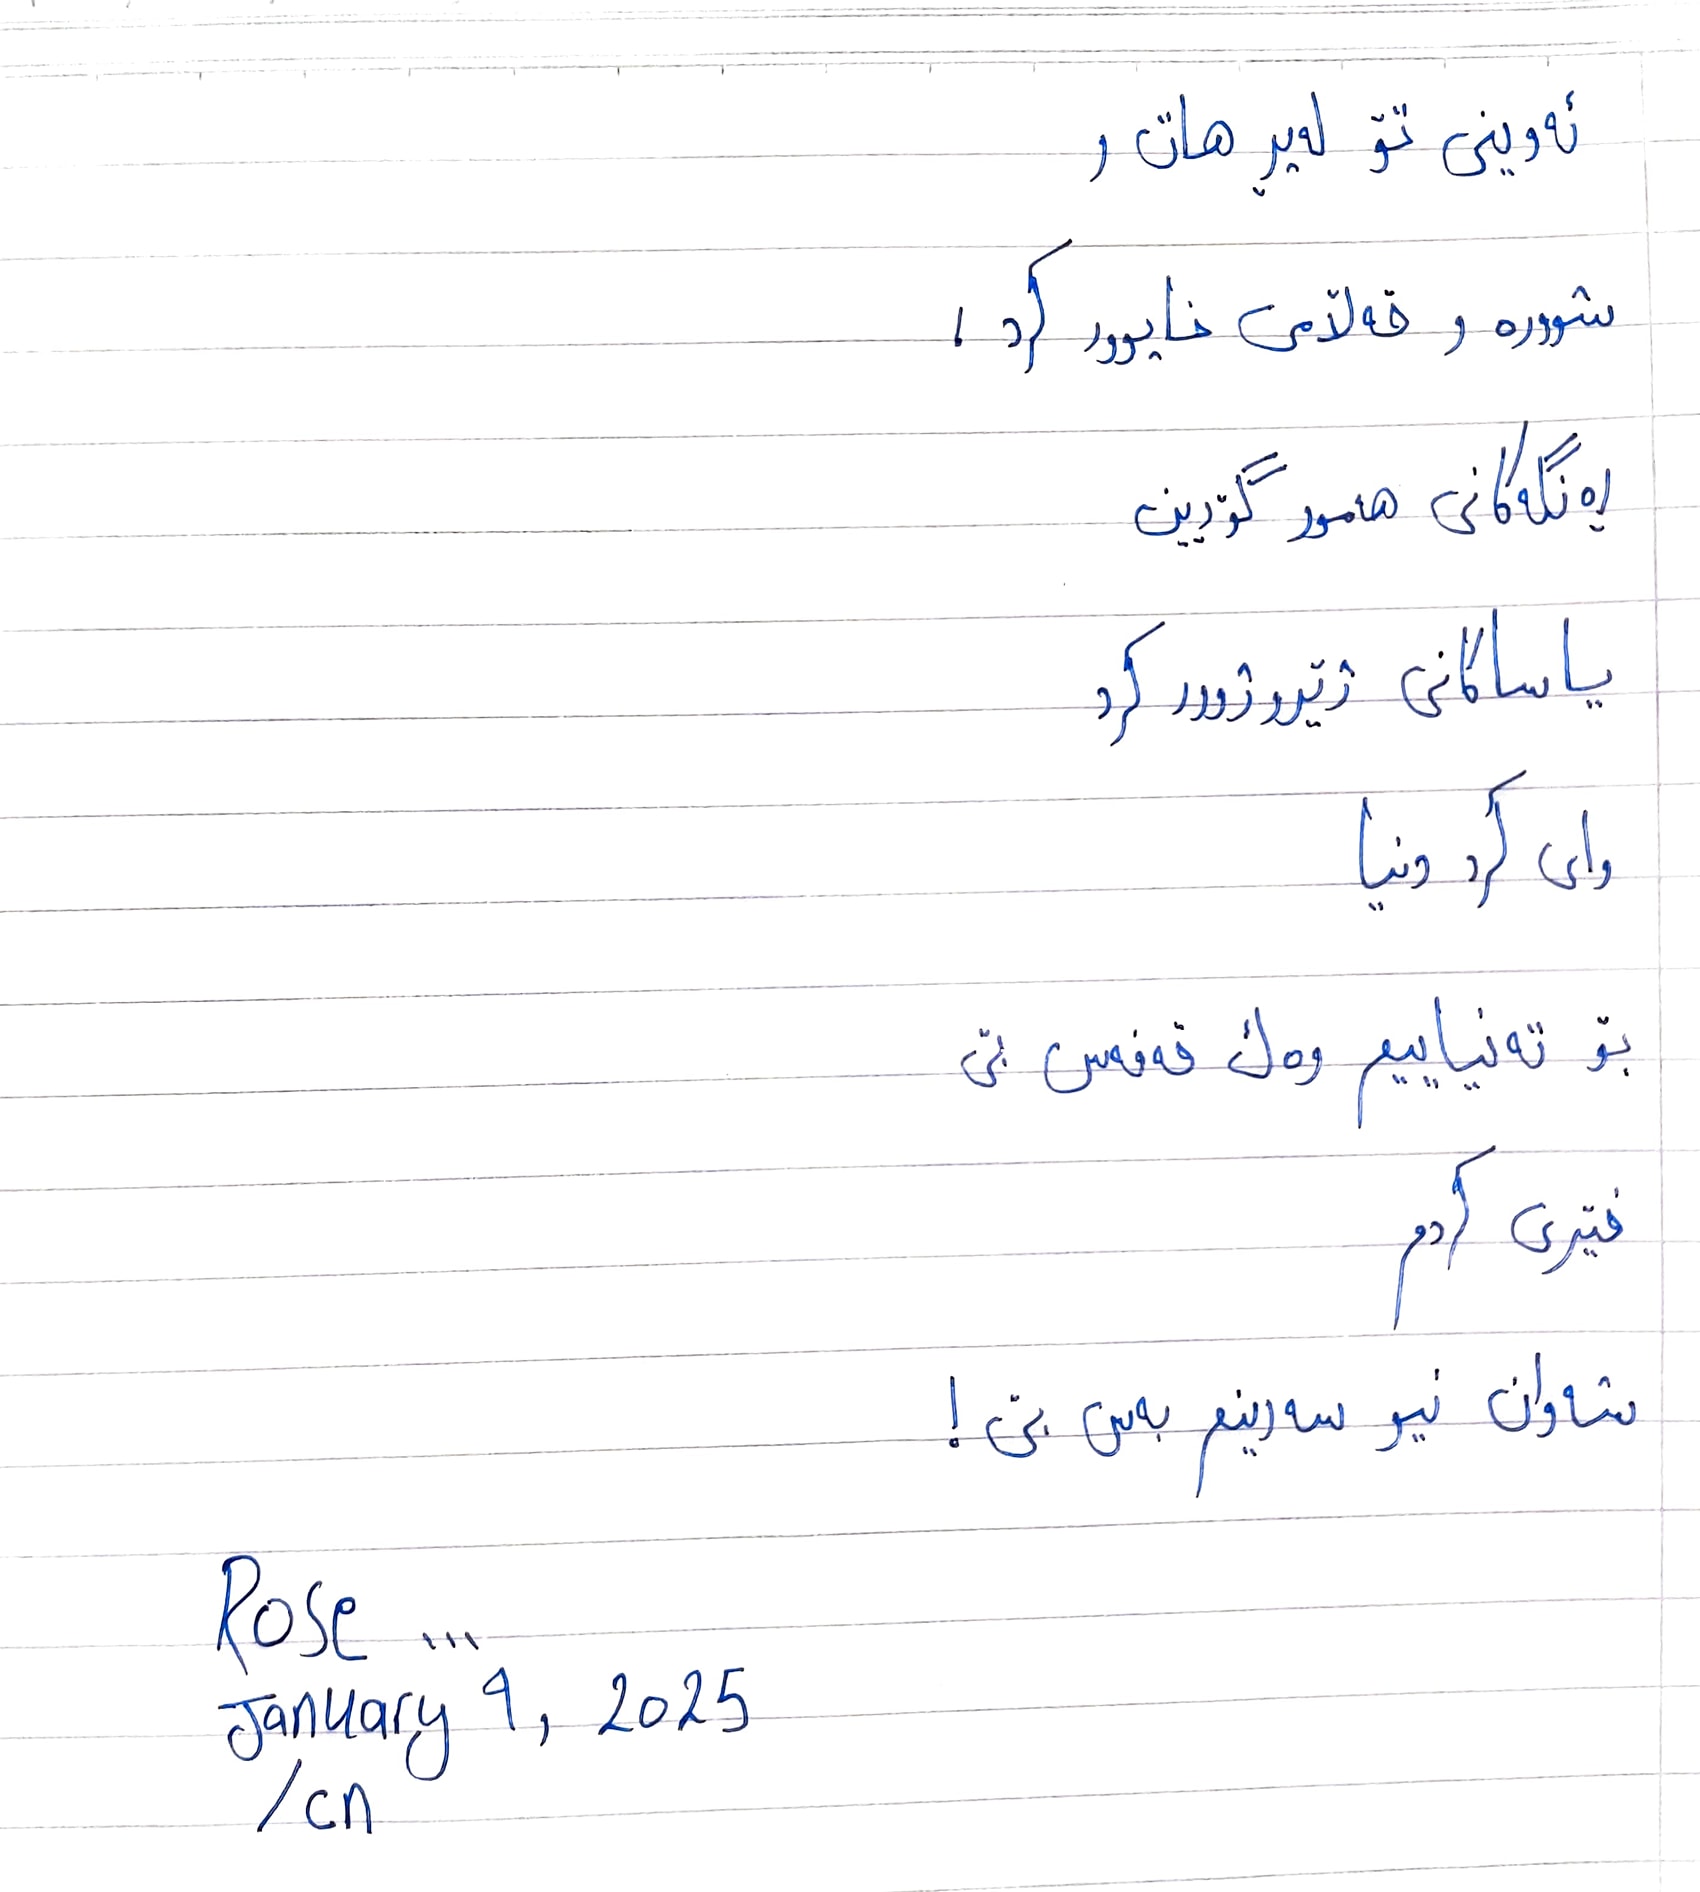 ئەوینی تۆ لەپڕ هات و
شوورە و قەڵامی خاپوور کرد ،
ڕەنگەکانی هەموو گۆڕین
یاساکانی ژێروژوور کرد
وای کرد دنیا
بۆ تەنیاییم وەك قەفەس بێ
فێری کردم
شەوان نیو سەرینم بەس بێ !
Rose ...
January 9, 2025
/cn